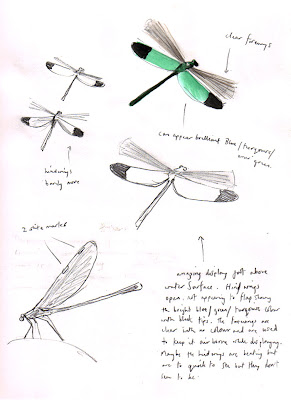 clear forewings
can appear brilliant Blue/turquoise/
green.
hindwings
barely move
2 site marks
amazing display just above
water surface. Hind wings
open not appearing to flap showing
the bright blue/green/turquoise colour
with black tips. The forewings are
clear with no colour and are used
to keep it airborne while displaying.
Maybe the hindwings are beating but
are to quick to see but they don't
seem to be.